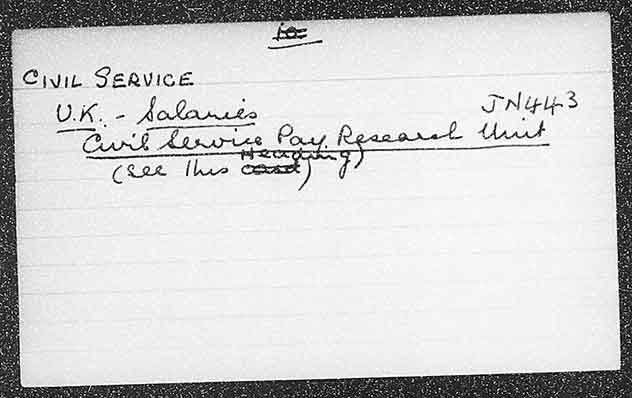 CIVIL SERVICE
U.K. - Salaries JN443
Civil Service Pay Research Unit
(See this Heading)